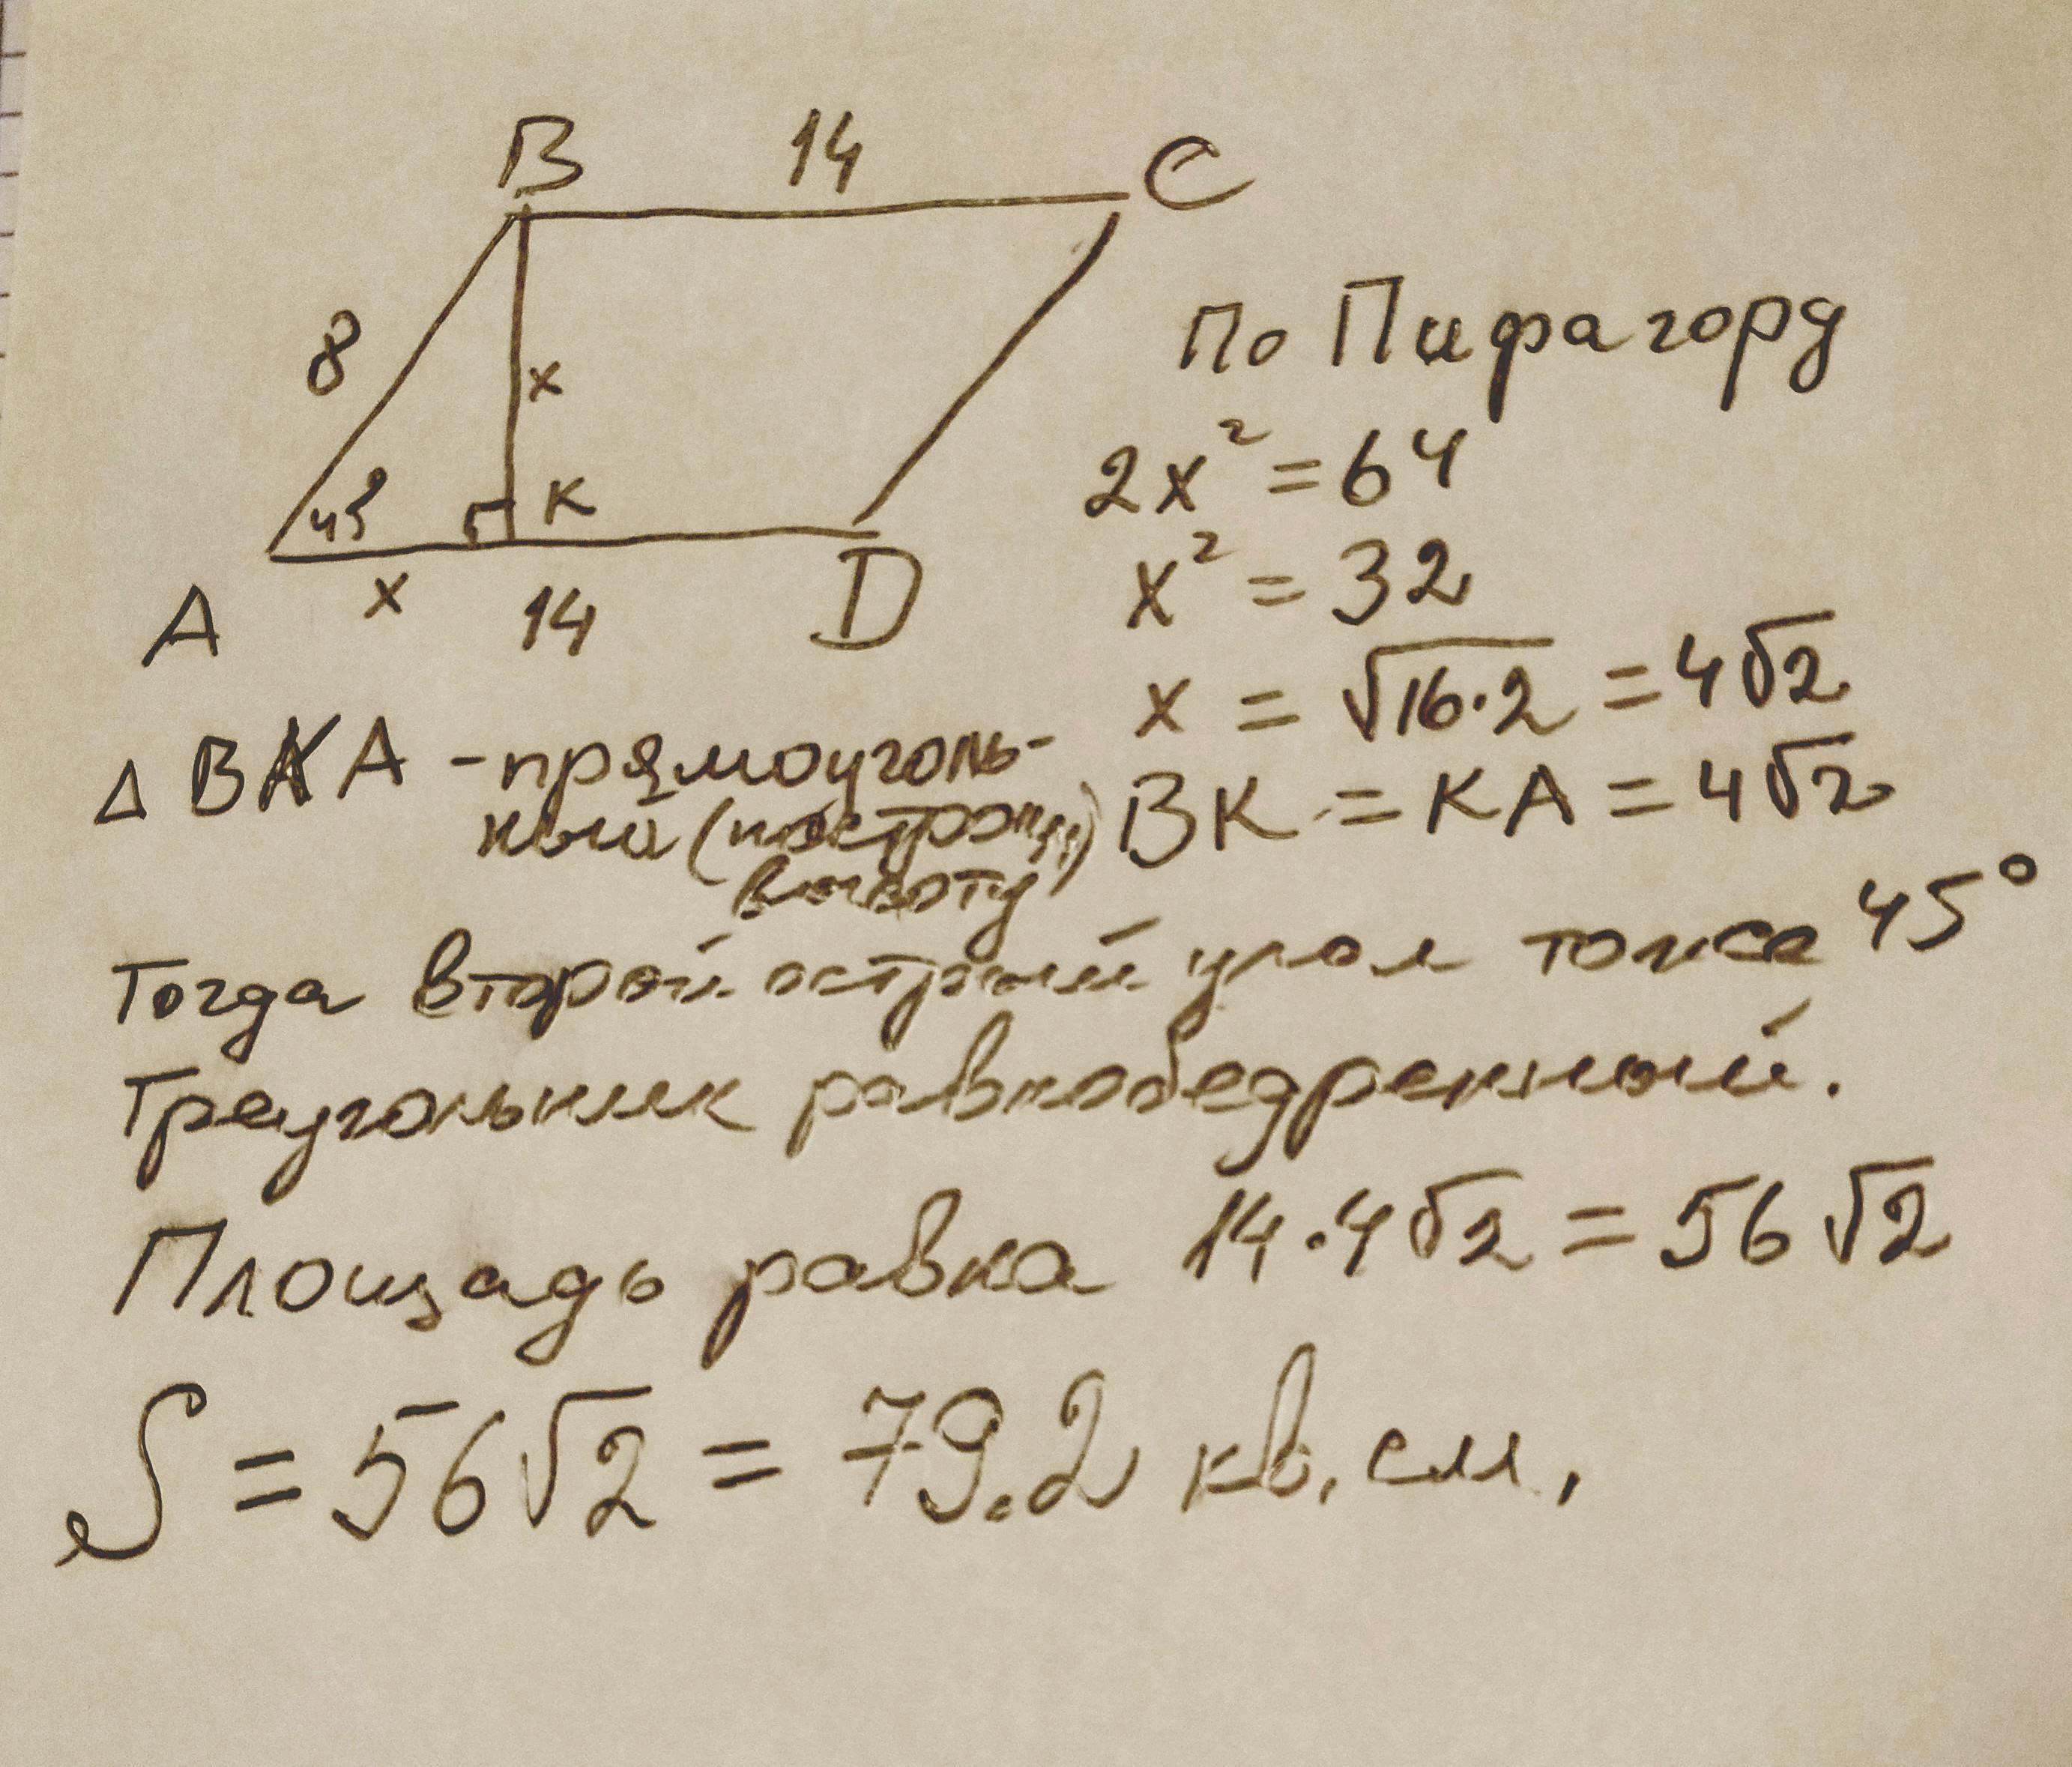 B 14 C
8
x
45°
К
A x 14 D
По Пифагору
2x² = 64
x² = 32
x = √16·2 = 4√2
BK = KA = 4√2
Δ BKA - прямоуголь-
ный (построили
высоту)
Тогда второй острый угол тоже 45°
Треугольник равнобедренный.
Площадь равна 14·4√2 = 56√2
S = 56√2 = 79.2 кв. см.